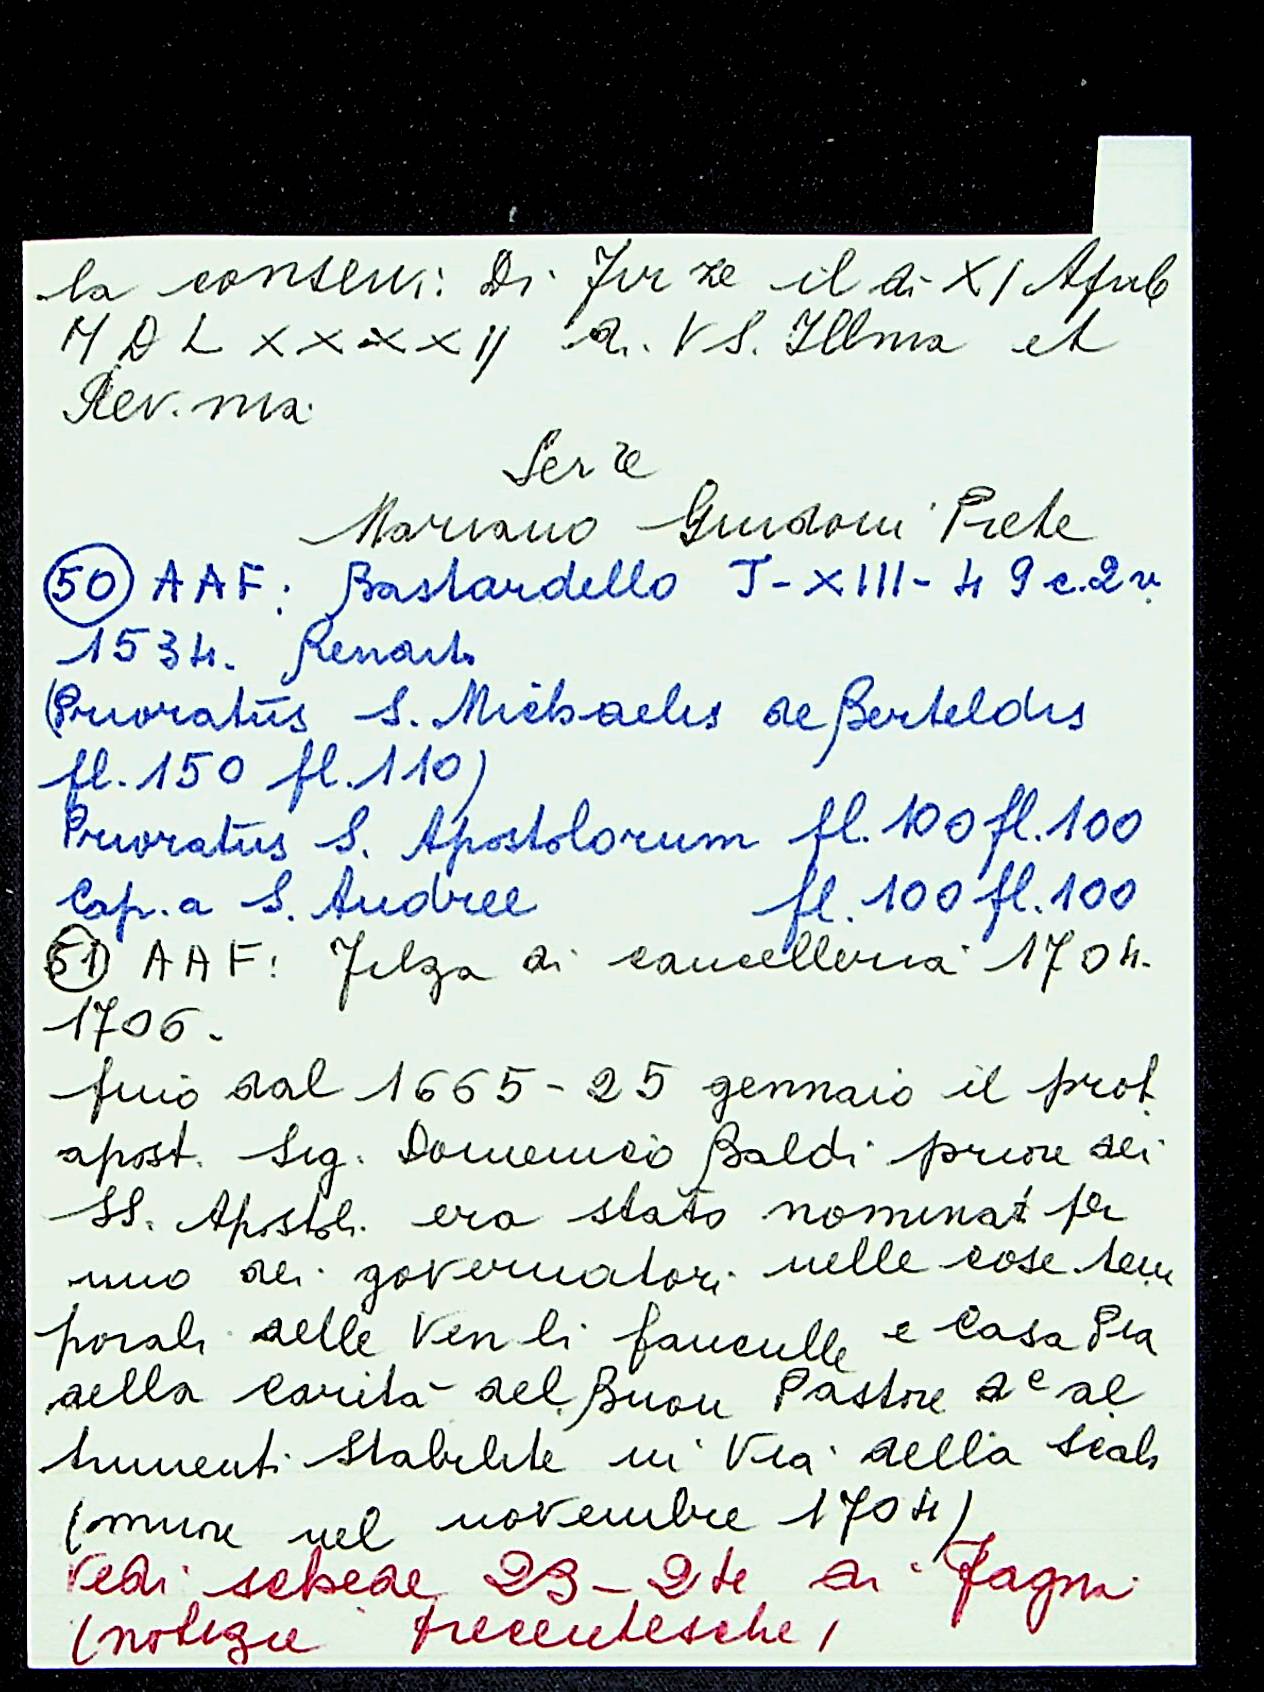 la conservi: Di Firze il di XI Aprile
MDLXXXXII di VS. Illma et
Rev.ma
Serre
Mariano Guidoni Prete
(50) AAF: Bastardello I-XIII-49 c.2v.
1534. Renaists
(Prioratus S. Michaelis de Berteldis
fl. 150 fl. 110)
Prioratus S. Apostolorum fl. 100 fl. 100
Cap.a S. Andree fl. 100 fl. 100
(51) AAF: Filza di cancelleria 1704-
1706.
fino dal 1665-25 gennaio il prot.
apost. Sig. Domenico Baldi priore dei
SS. Apostoli era stato nominat per
uno dei governatori nelle cose tem
porali delle Ven li fanciulle e Casa Pia
della carità del Buon Pastore de al
trimenti Stabilite in Via della Scala
(muore nel novembre 1704)
Vedi schede 23-24 di Fagni
(notizie trecentesche)